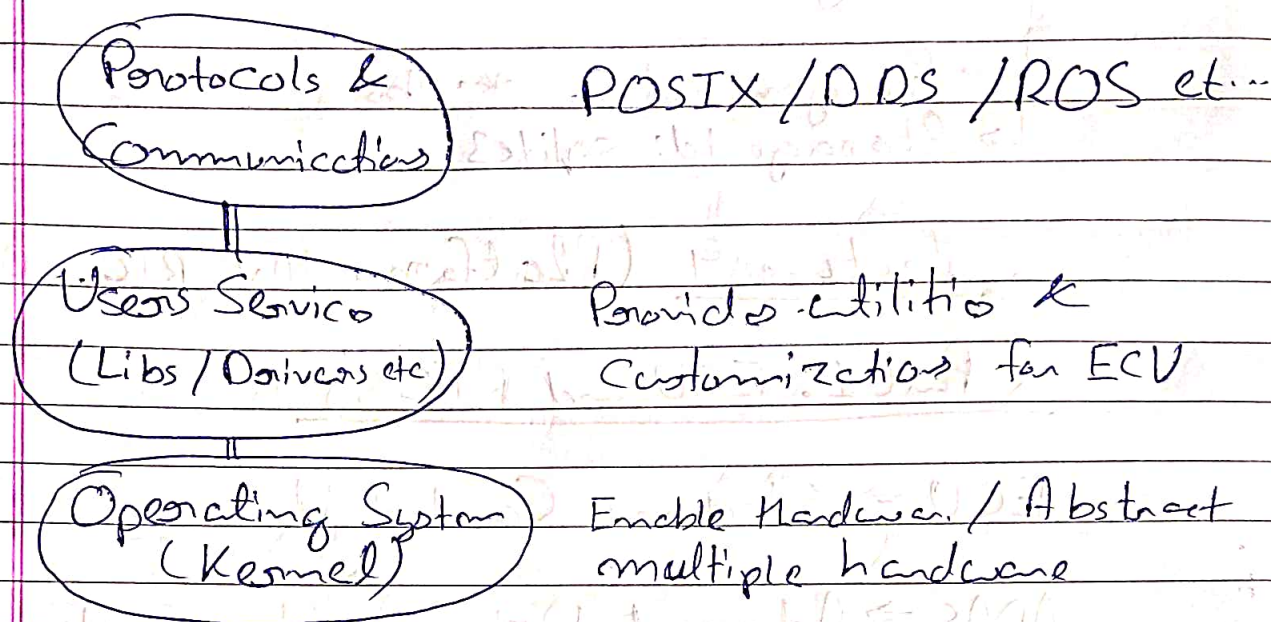 Protocols &
Communications
POSIX / DDS / ROS et...
Users Service
(Libs / Drivers etc)
Provides utilities &
Customizations for ECU
Operating System
(Kernel)
Enable Hardware / Abstract
multiple hardware